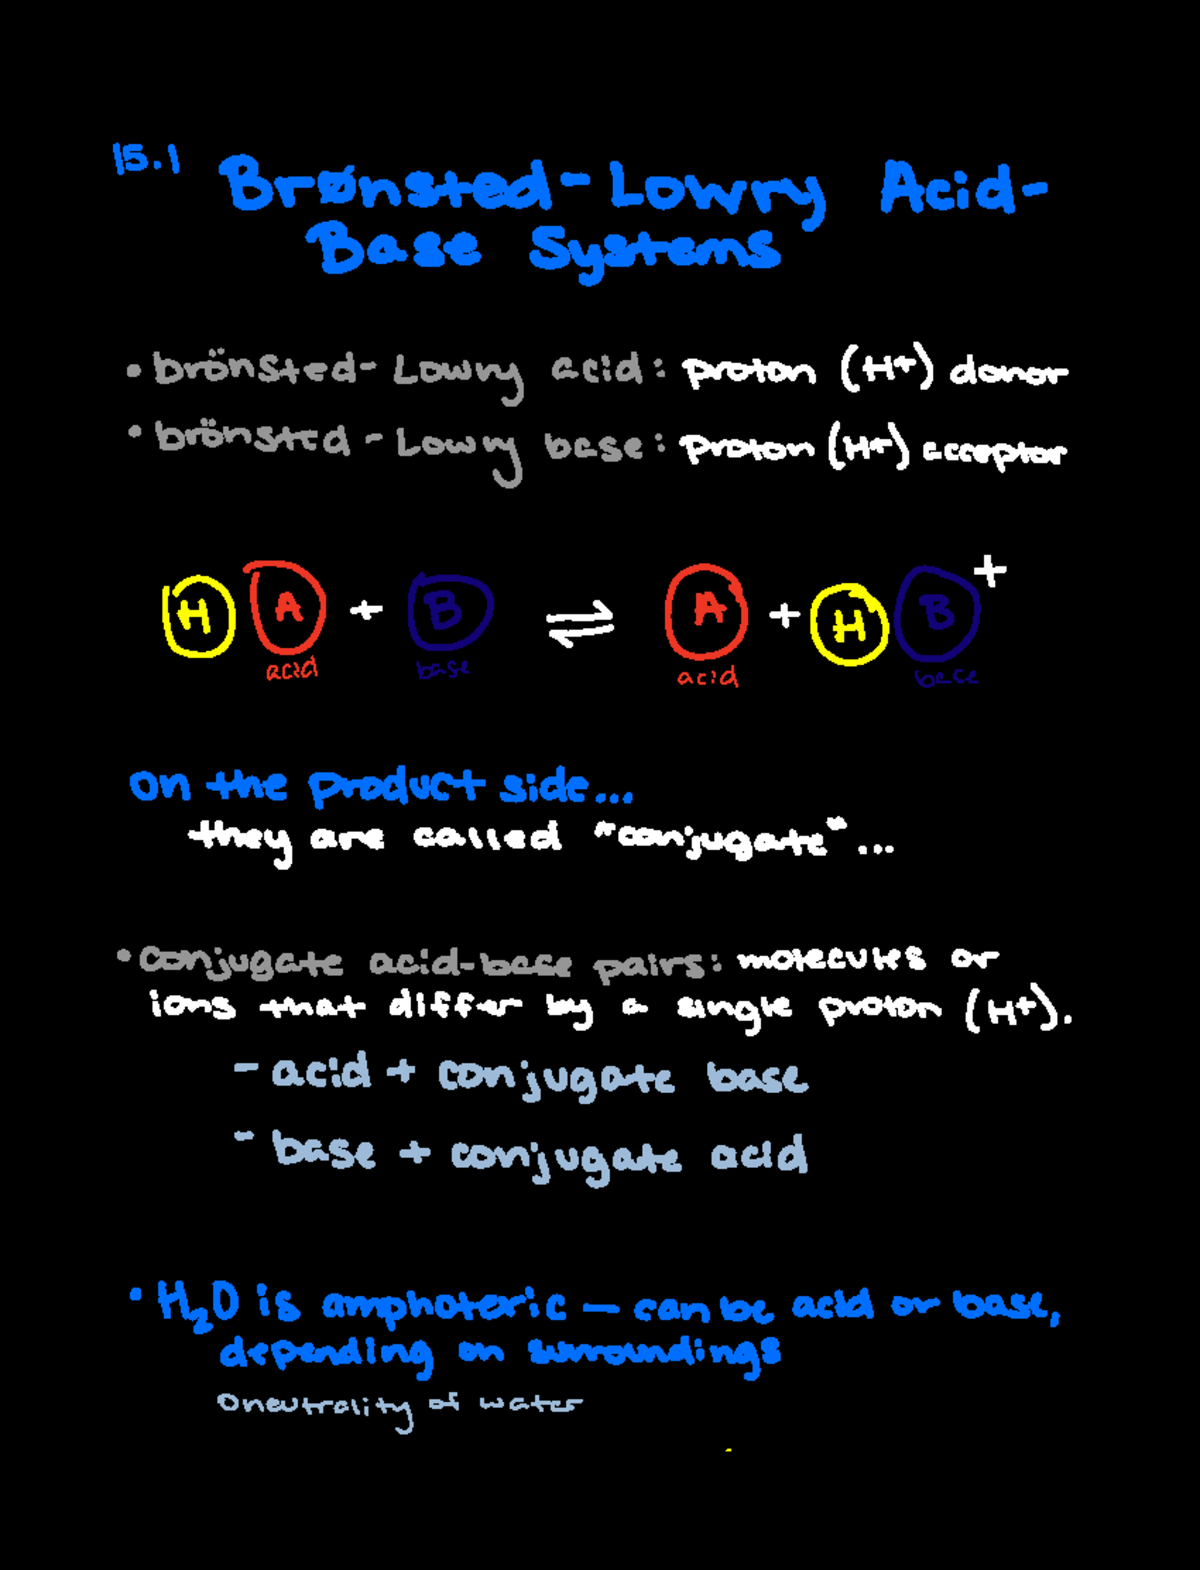 15.1 Brønsted-Lowry Acid-
Base Systems
• brönsted-Lowry acid: proton (H+) donor
• brönsted-Lowry base: proton (H+) acceptor
H A + B ⇌ A + H B +
acid base acid base
on the product side...
they are called "conjugate"...
• conjugate acid-base pairs: molecules or
ions that differ by a single proton (H+).
- acid + conjugate base
- base + conjugate acid
• H₂O is amphoteric — can be acid or base,
depending on surroundings
○ neutrality of water